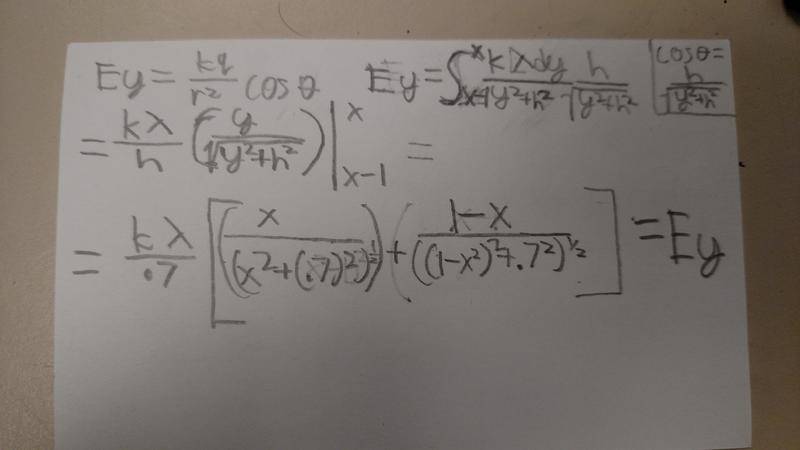 Ey = kq/r² cosθ   Ey = ∫_{x-1}^{x} kλdy/(y²+h²) h/√(y²+h²)   cosθ = h/√(y²+h²)
= kλ/h (y/√(y²+h²)) |_{x-1}^{x} =
= kλ/.7 [(x/(x²+(.7)²)^½) + (1-x/((1-x²)²+.7²)^½] = Ey